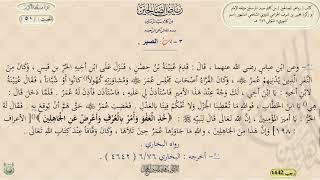 رياض الصالحين
٣ - باب الصبر
وعن ابن عباس رضي الله عنهما ، قال : قدم عيينة بن حصن ، فنزل على ابن أخيه الحر بن قيس ، وكان من
النفر الذين يدنيهم عمر رضي الله عنه ، وكان القراء أصحاب مجلس عمر ومشاورته كهولا كانوا أو شبانا ، فقال عيينة
لابن أخيه : يا ابن أخي ، لك وجه عند هذا الأمير فاستأذن لي عليه ، فاستأذن له ، فأذن له عمر . فلما دخل قال : هي
يا ابن الخطاب ، فوالله ما تعطينا الجزل ولا تحكم فينا بالعدل ، فغضب عمر حتى هم أن يوقع به ، فقال له الحر : يا أمير
المؤمنين إن الله تعالى قال لنبيه : ﴿ خُذِ الْعَفْوَ وَأْمُرْ بِالْعُرْفِ وَأَعْرِضْ عَنِ الْجَاهِلِينَ ﴾ [الأعراف :
١٩٨] وإن هذا من الجاهلين ، والله ما جاوزها عمر حين تلاها ، وكان وقافا عند كتاب الله تعالى .
رواه البخاري .
أخرجه : البخاري ٦/٧٦ (٤٦٤٢) .
رجب 1442